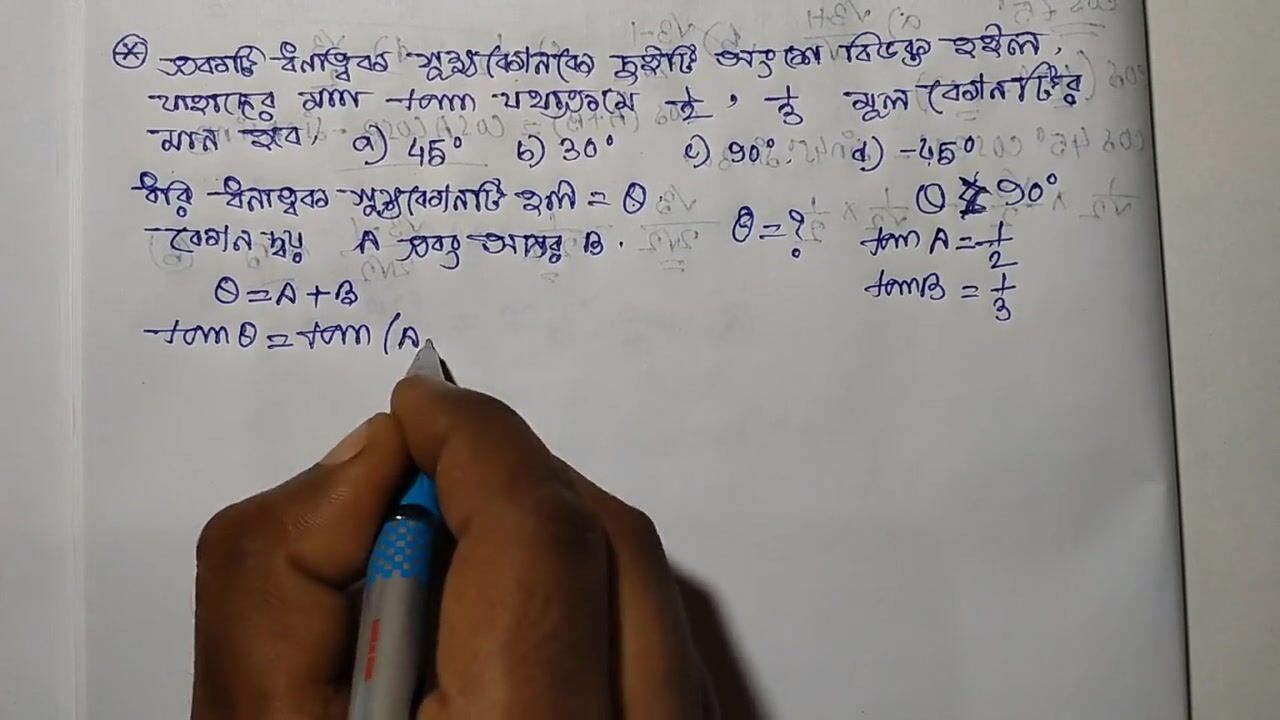 একটি ধনাত্মক সূক্ষ্মকোনকে দুইটি অংশে বিভক্ত হইল,
যাহাদের মান tan যথাক্রমে 1/2, 1/3 মূল কোনটির
মান হবে, a) 45° b) 30° c) 90°. d) -45°
ধরি ধনাত্মক সূক্ষ্মকোনটি হল = θ
θ 90°
কোন দ্বয় A এবং অপর B. θ = ? tan A = 1/2
θ = A + B tan B = 1/3
tan θ = tan (A